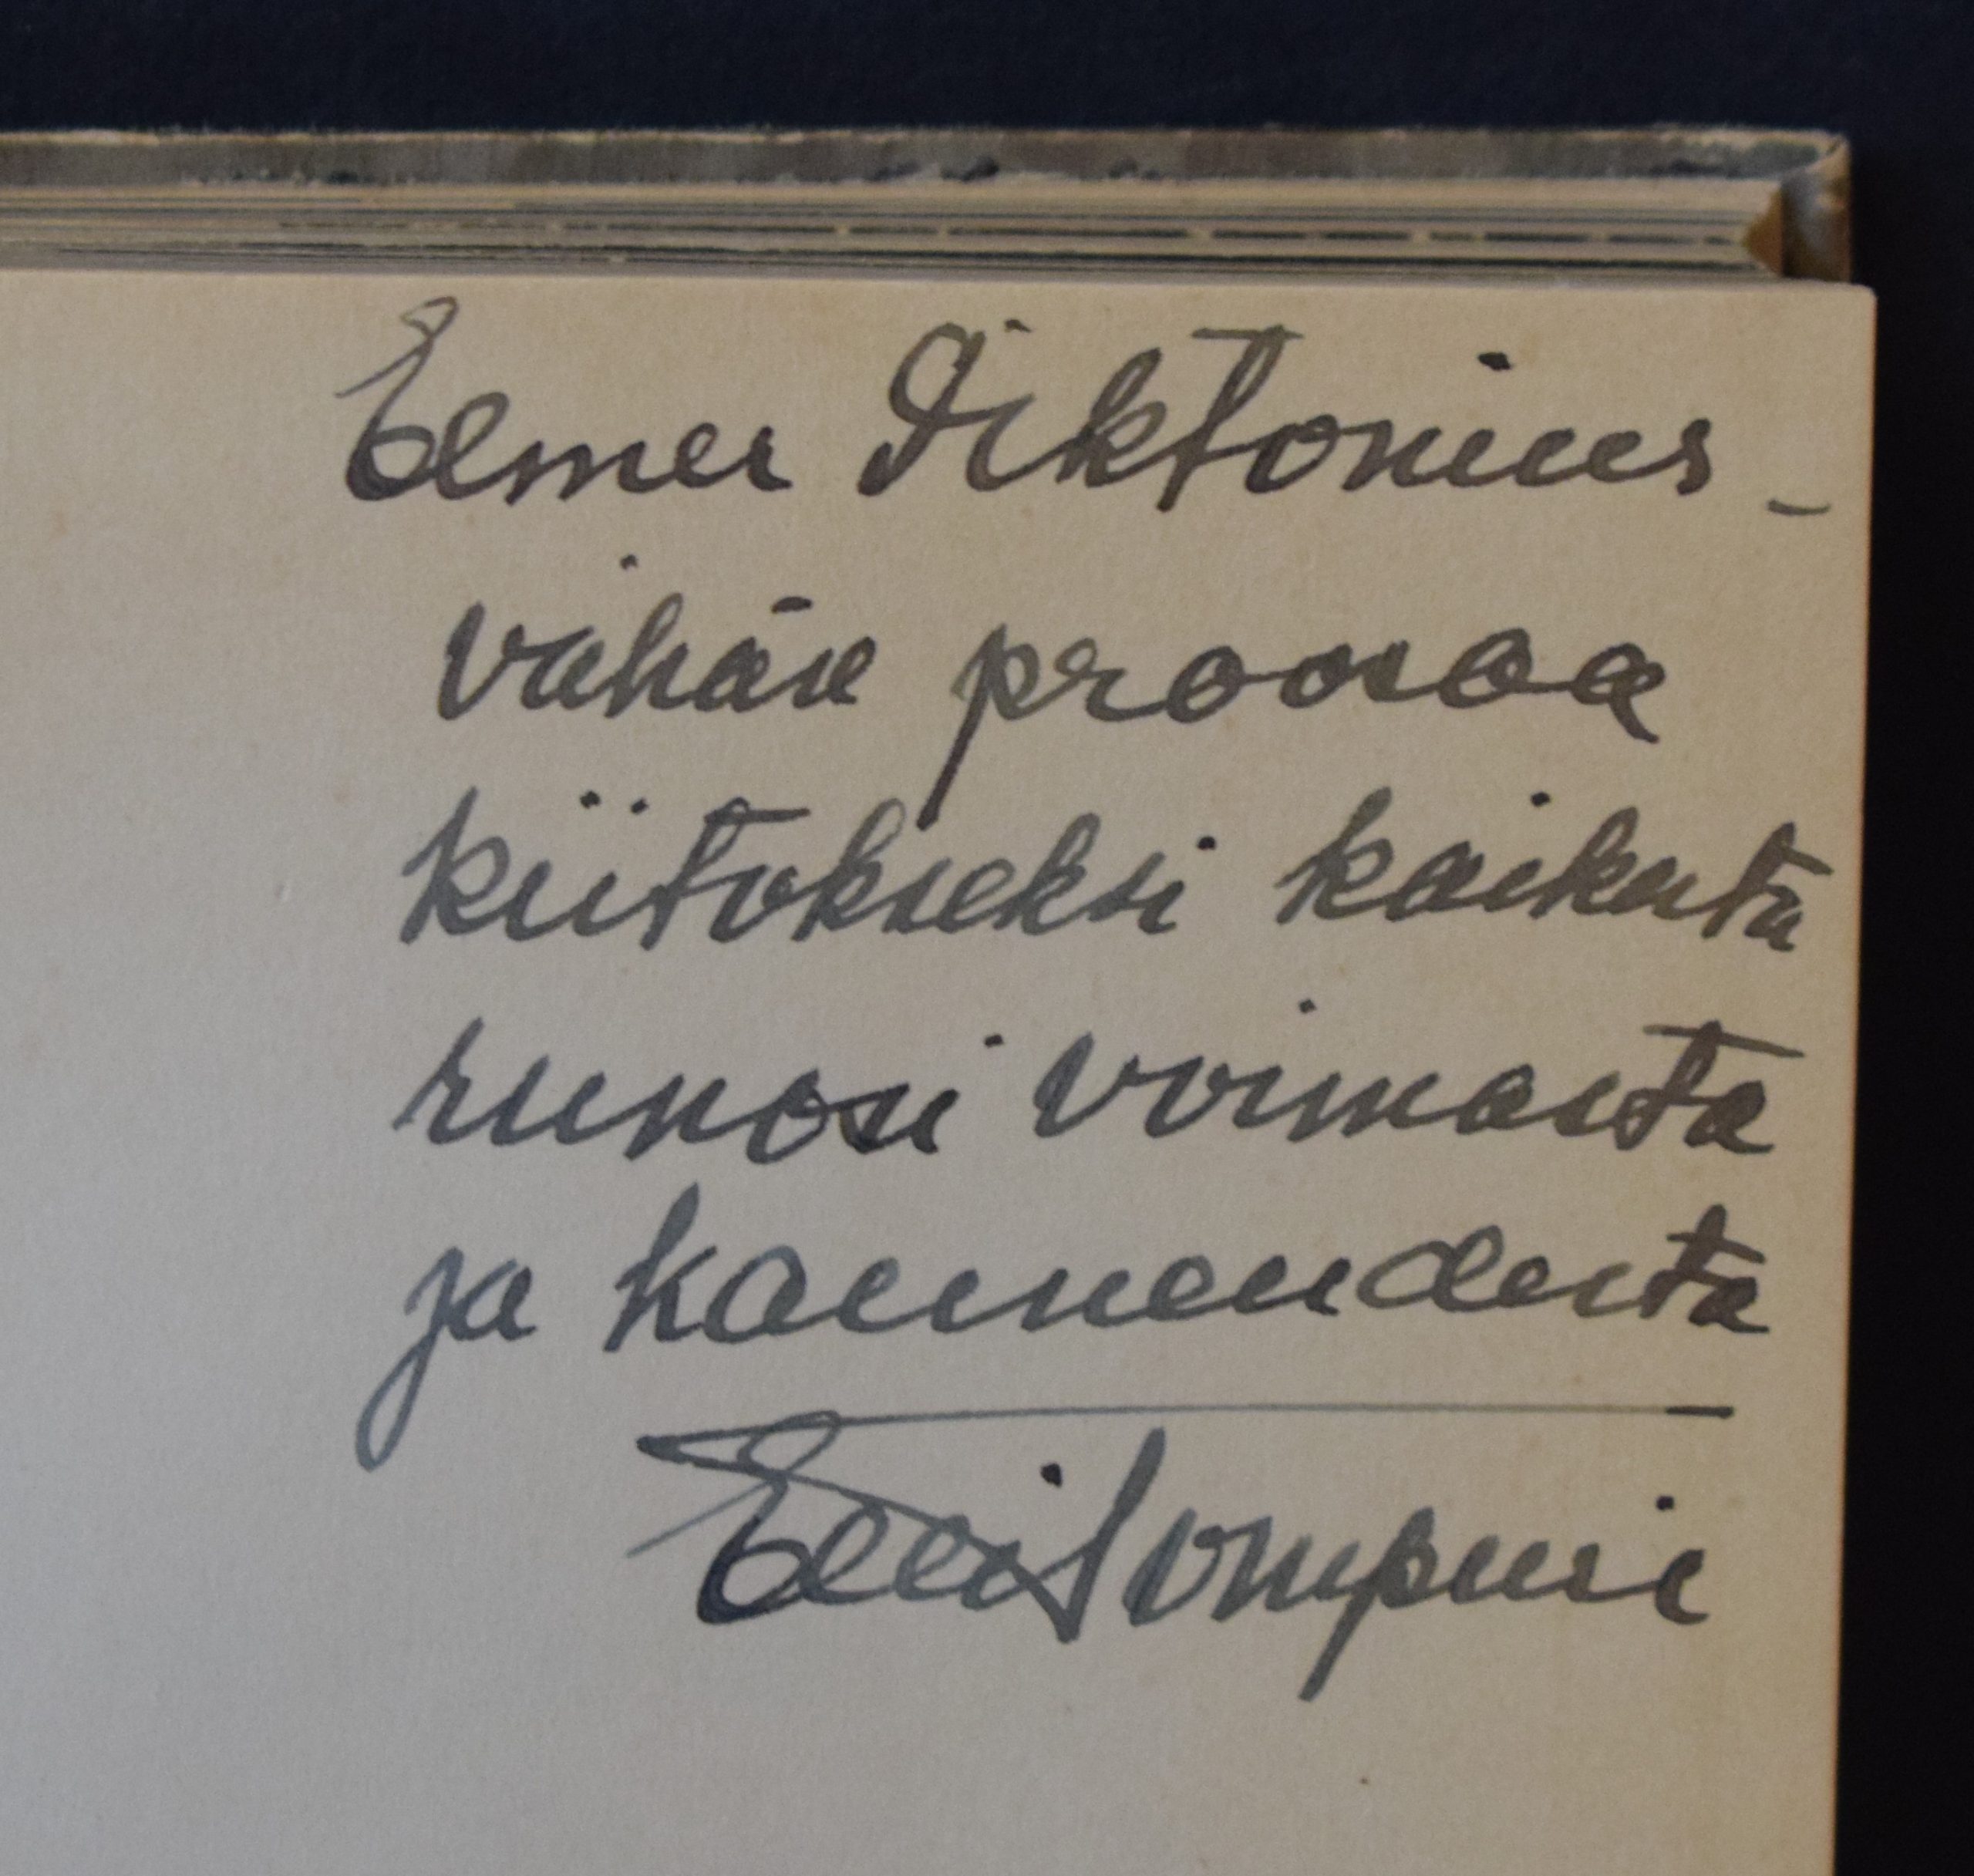 Elmer Diktonius –
vähän proosaa
kiitokseksi kaikesta
runosi voimasta
ja kauneudesta
Elli Tompuri